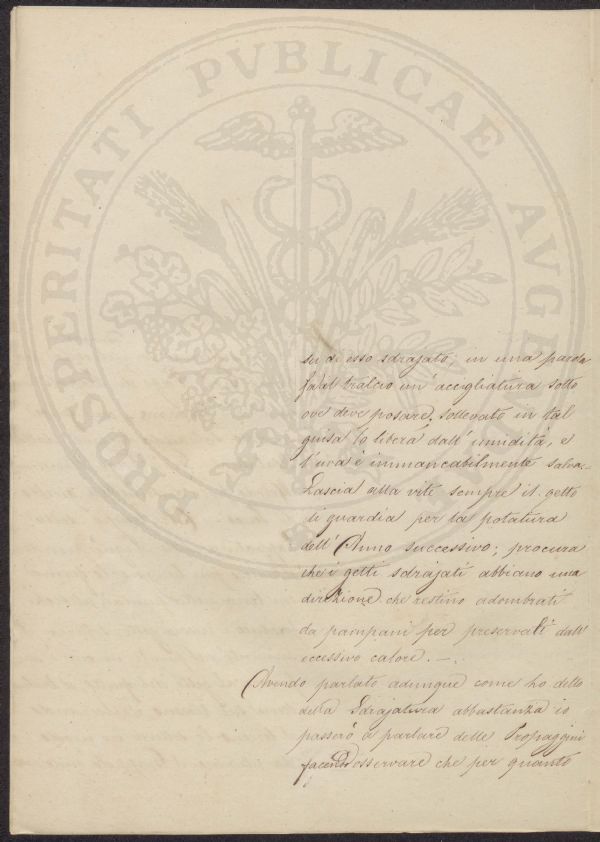 PROSPERITATI PVBLICAE AVGE
su di esso sdrajato; in una parola
fa al tralcio un' accigliatura sotto
ove deve posare. sollevato in tal
guisa lo libera dall' umidità, e
l'uva è immancabilmente salva.-
Lascia alla vite sempre il getto
di guardia per la potatura
dell' Anno successivo; procura
che i getti sdrajati abbiano una
direzione che restino adombrati
da pampani per preservarli dall'
eccessivo calore. —.
Avendo parlato adunque come ho detto
della Sdrajatura abbastanza io
passerò a parlare delle Propaggini
facendo osservare che per quanto